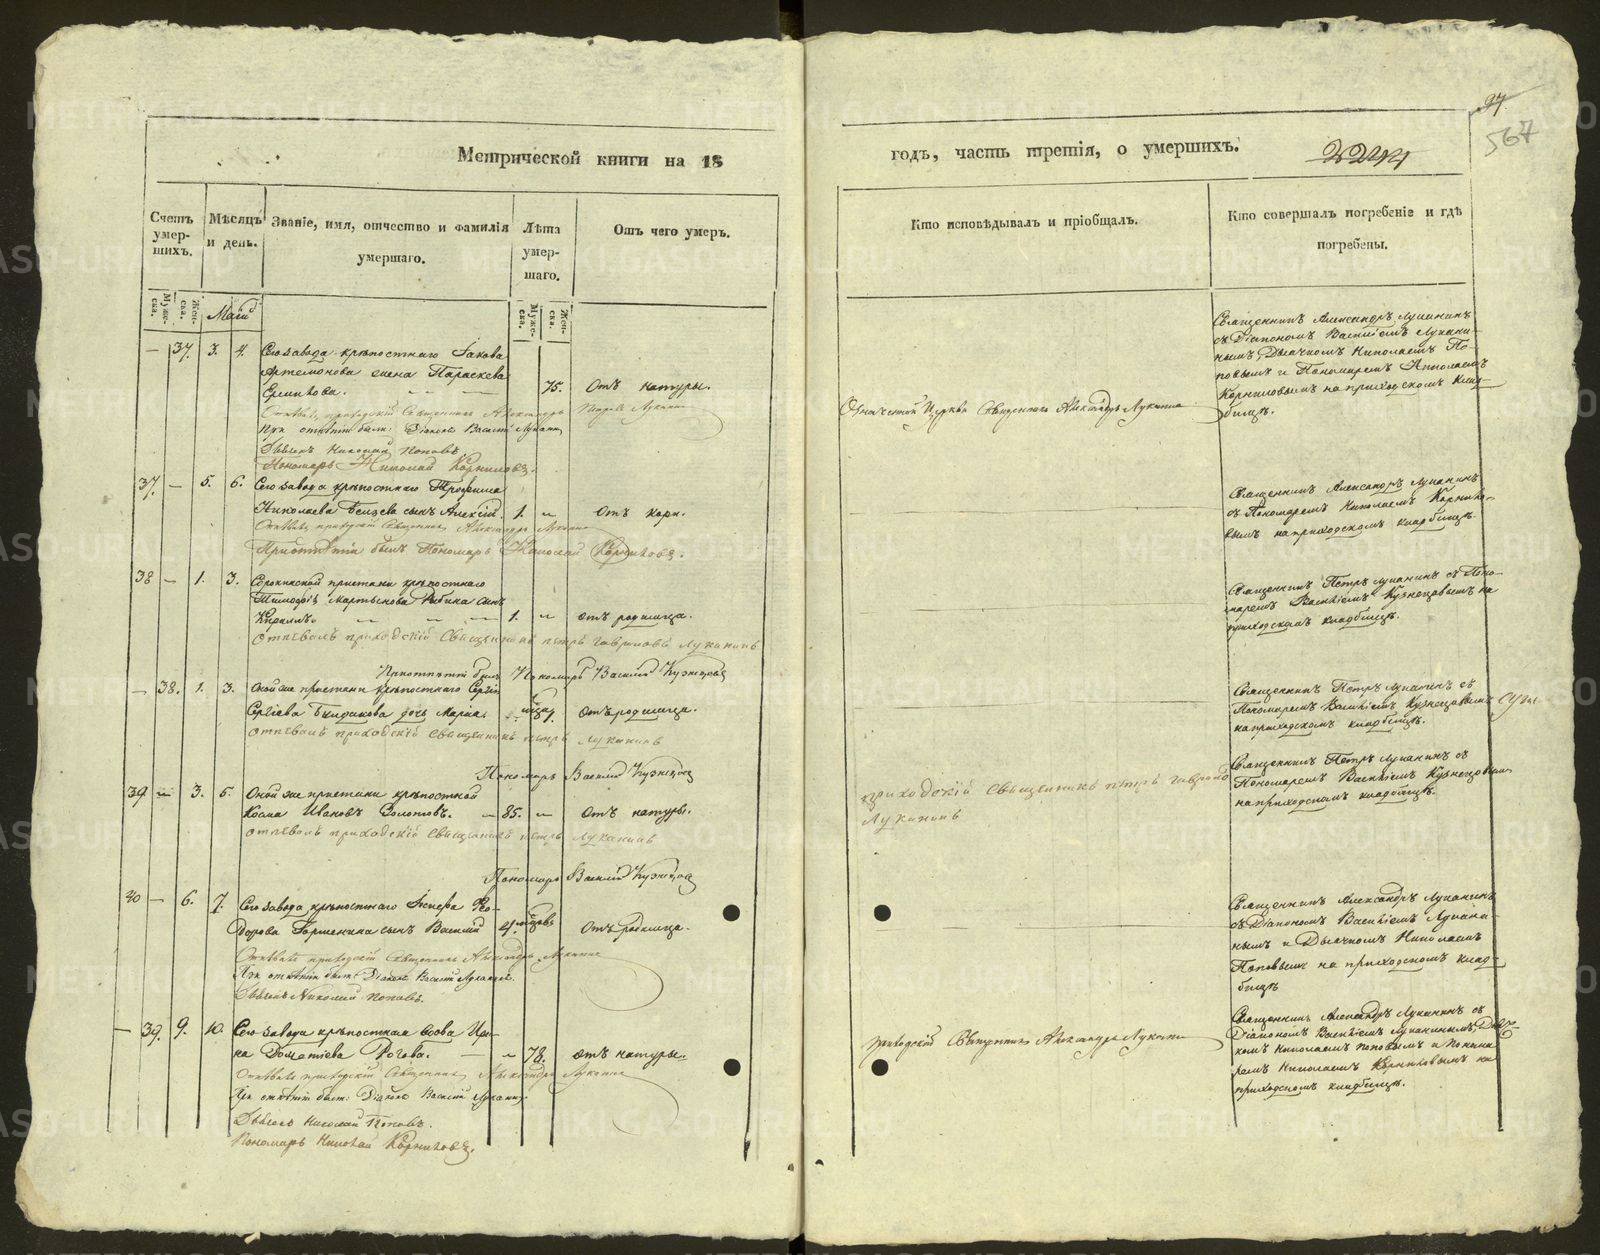 Метрической книги на 18
годъ, часть третія, о умершихъ.
2244
97
567
Счетъ умер-шихъ.
Мѣсяцъ и день.
Званіе, имя, отчество и фамилія умершаго.
Лѣта умер-шаго.
Отъ чего умеръ.
Кто исповѣдывалъ и пріобщалъ.
Кто совершалъ погребеніе и гдѣ погребены.
Муже-ска.
Жен-ска.
Маій
Муже-ска.
Жен-ска.
— 37. 3. 4. Сего завода крѣпостнаго Іакова
Артемонова жена Параскева
75. Отъ натуры.
Отпѣвалъ приходскій Священникъ Александръ Луканинъ
При отпѣтіи были: Діаконъ Василій Луканинъ
Дьячекъ Николай Поповъ
Пономарь Николай Корниловъ.
Означенной Церкви Священникъ Александръ Луканинъ
Священникъ Александръ Луканинъ
съ Діакономъ Василіемъ Лукани-
нымъ, Дьячкомъ Николаемъ По-
повымъ и Пономаремъ Николаемъ
Корниловымъ на приходскомъ клад-
бищѣ.
37. — 5. 6. Сего завода крѣпостнаго Трофима
Николаева сынъ Алексій. 1. „ Отъ кори.
Отпѣвалъ приходскій Священникъ Александръ Луканинъ
При отпѣтіи былъ Пономарь Николай Корниловъ.
Священникъ Александръ Луканинъ
съ Пономаремъ Николаемъ Корнило-
вымъ на приходскомъ кладбищѣ.
38 — 1. 3. Сорокинской пристани крѣпостнаго
Тимофѣя Мартынова сынъ
Кириллъ. 1. „ отъ родимца.
Отпевалъ приходскій Священникъ Петръ Гавриловъ Луканинъ
При отпѣтіи былъ Пономарь Василій Кузнецовъ
Священникъ Петръ Луканинъ съ Поно-
маремъ Василіемъ Кузнецовымъ на
приходскомъ кладбищѣ.
— 38. 1. 3. Оной же пристани крѣпостнаго Сергія
Сергіева дочь Марія. отъ родимца.
Отпевалъ приходскій Священникъ Петръ Луканинъ
Пономарь Василій Кузнецовъ
Священникъ Петръ Луканинъ съ
Пономаремъ Василіемъ Кузнецовымъ
на приходскомъ кладбищѣ.
39 — 3. 5. Оной же пристани крѣпостной
Косма Ивановъ Золотовъ. — 85. „ отъ натуры.
Отпевалъ приходскій Священникъ Петръ Луканинъ
Пономарь Василій Кузнецовъ
приходскій Священникъ Петръ Гавриловъ
Луканинъ
Священникъ Петръ Луканинъ съ
Пономаремъ Василіемъ Кузнецовымъ
на приходскомъ кладбищѣ.
40 — 6. 7. Сего завода крѣпостнаго Ѳе-
дорова сынъ Василій 4. Отъ родимца.
Отпѣвалъ приходскій Священникъ Александръ Луканинъ
При отпѣтіи были: Діаконъ Василій Луканинъ
Дьячекъ Николай Поповъ.
Священникъ Александръ Луканинъ
съ Діакономъ Василіемъ Лукани-
нымъ и Дьячкомъ Николаемъ
Поповымъ на приходскомъ клад-
бищѣ
— 39. 9. 10. Сего завода крѣпостная вдова Ири-
на Дометіева Рогова. — „ 78. отъ натуры.
Отпѣвалъ приходскій Священникъ Александръ Луканинъ
При отпѣтіи были: Діаконъ Василій Луканинъ
Дьячекъ Николай Поповъ.
Пономарь Николай Корниловъ.
приходскій Священникъ Александръ Луканинъ
Священникъ Александръ Луканинъ съ
Діакономъ Василіемъ Луканинымъ, Дьяч-
комъ Николаемъ Поповымъ и Понома-
ремъ Николаемъ Корниловымъ на
приходскомъ кладбищѣ.